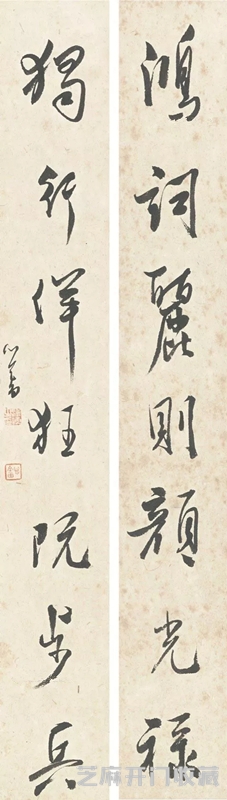 鴻詞麗則顏光祿
獨行佯狂阮步兵
心畬
芝麻开门收藏